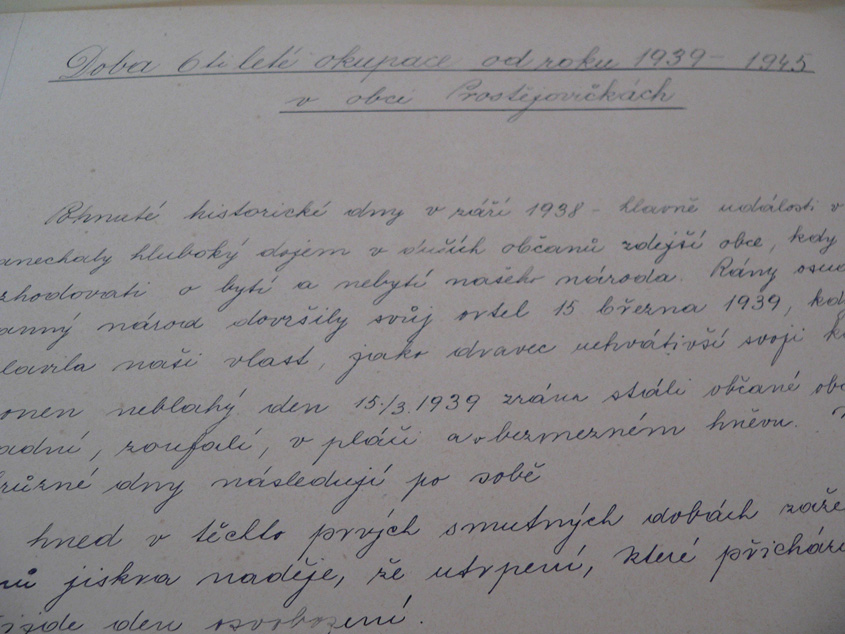 Doba 6ti leté okupace od roku 1939 - 1945
v obci Prostějovičkách
Pohnuté historické dny v září 1938 - hlavně události v
anechaly hluboký dojem v duších občanů zdejší obce, kdy
zhodovati o bytí a nebytí našeho národa. Rány osu
anný národ dovršily svůj ortel 15 března 1939, kd
lavila naši vlast, jako dravec uchvátivší svoji k
onen neblahý den 15./3. 1939 zrána stáli občané ob
adní, zoufalí, v pláči a bezmezném hněvu.
různé dny následují po sobě
hned v těchto prvých smutných dobách zaže
nů jiskra naděje, že utrpení, které přicház
ijde den osvobození.